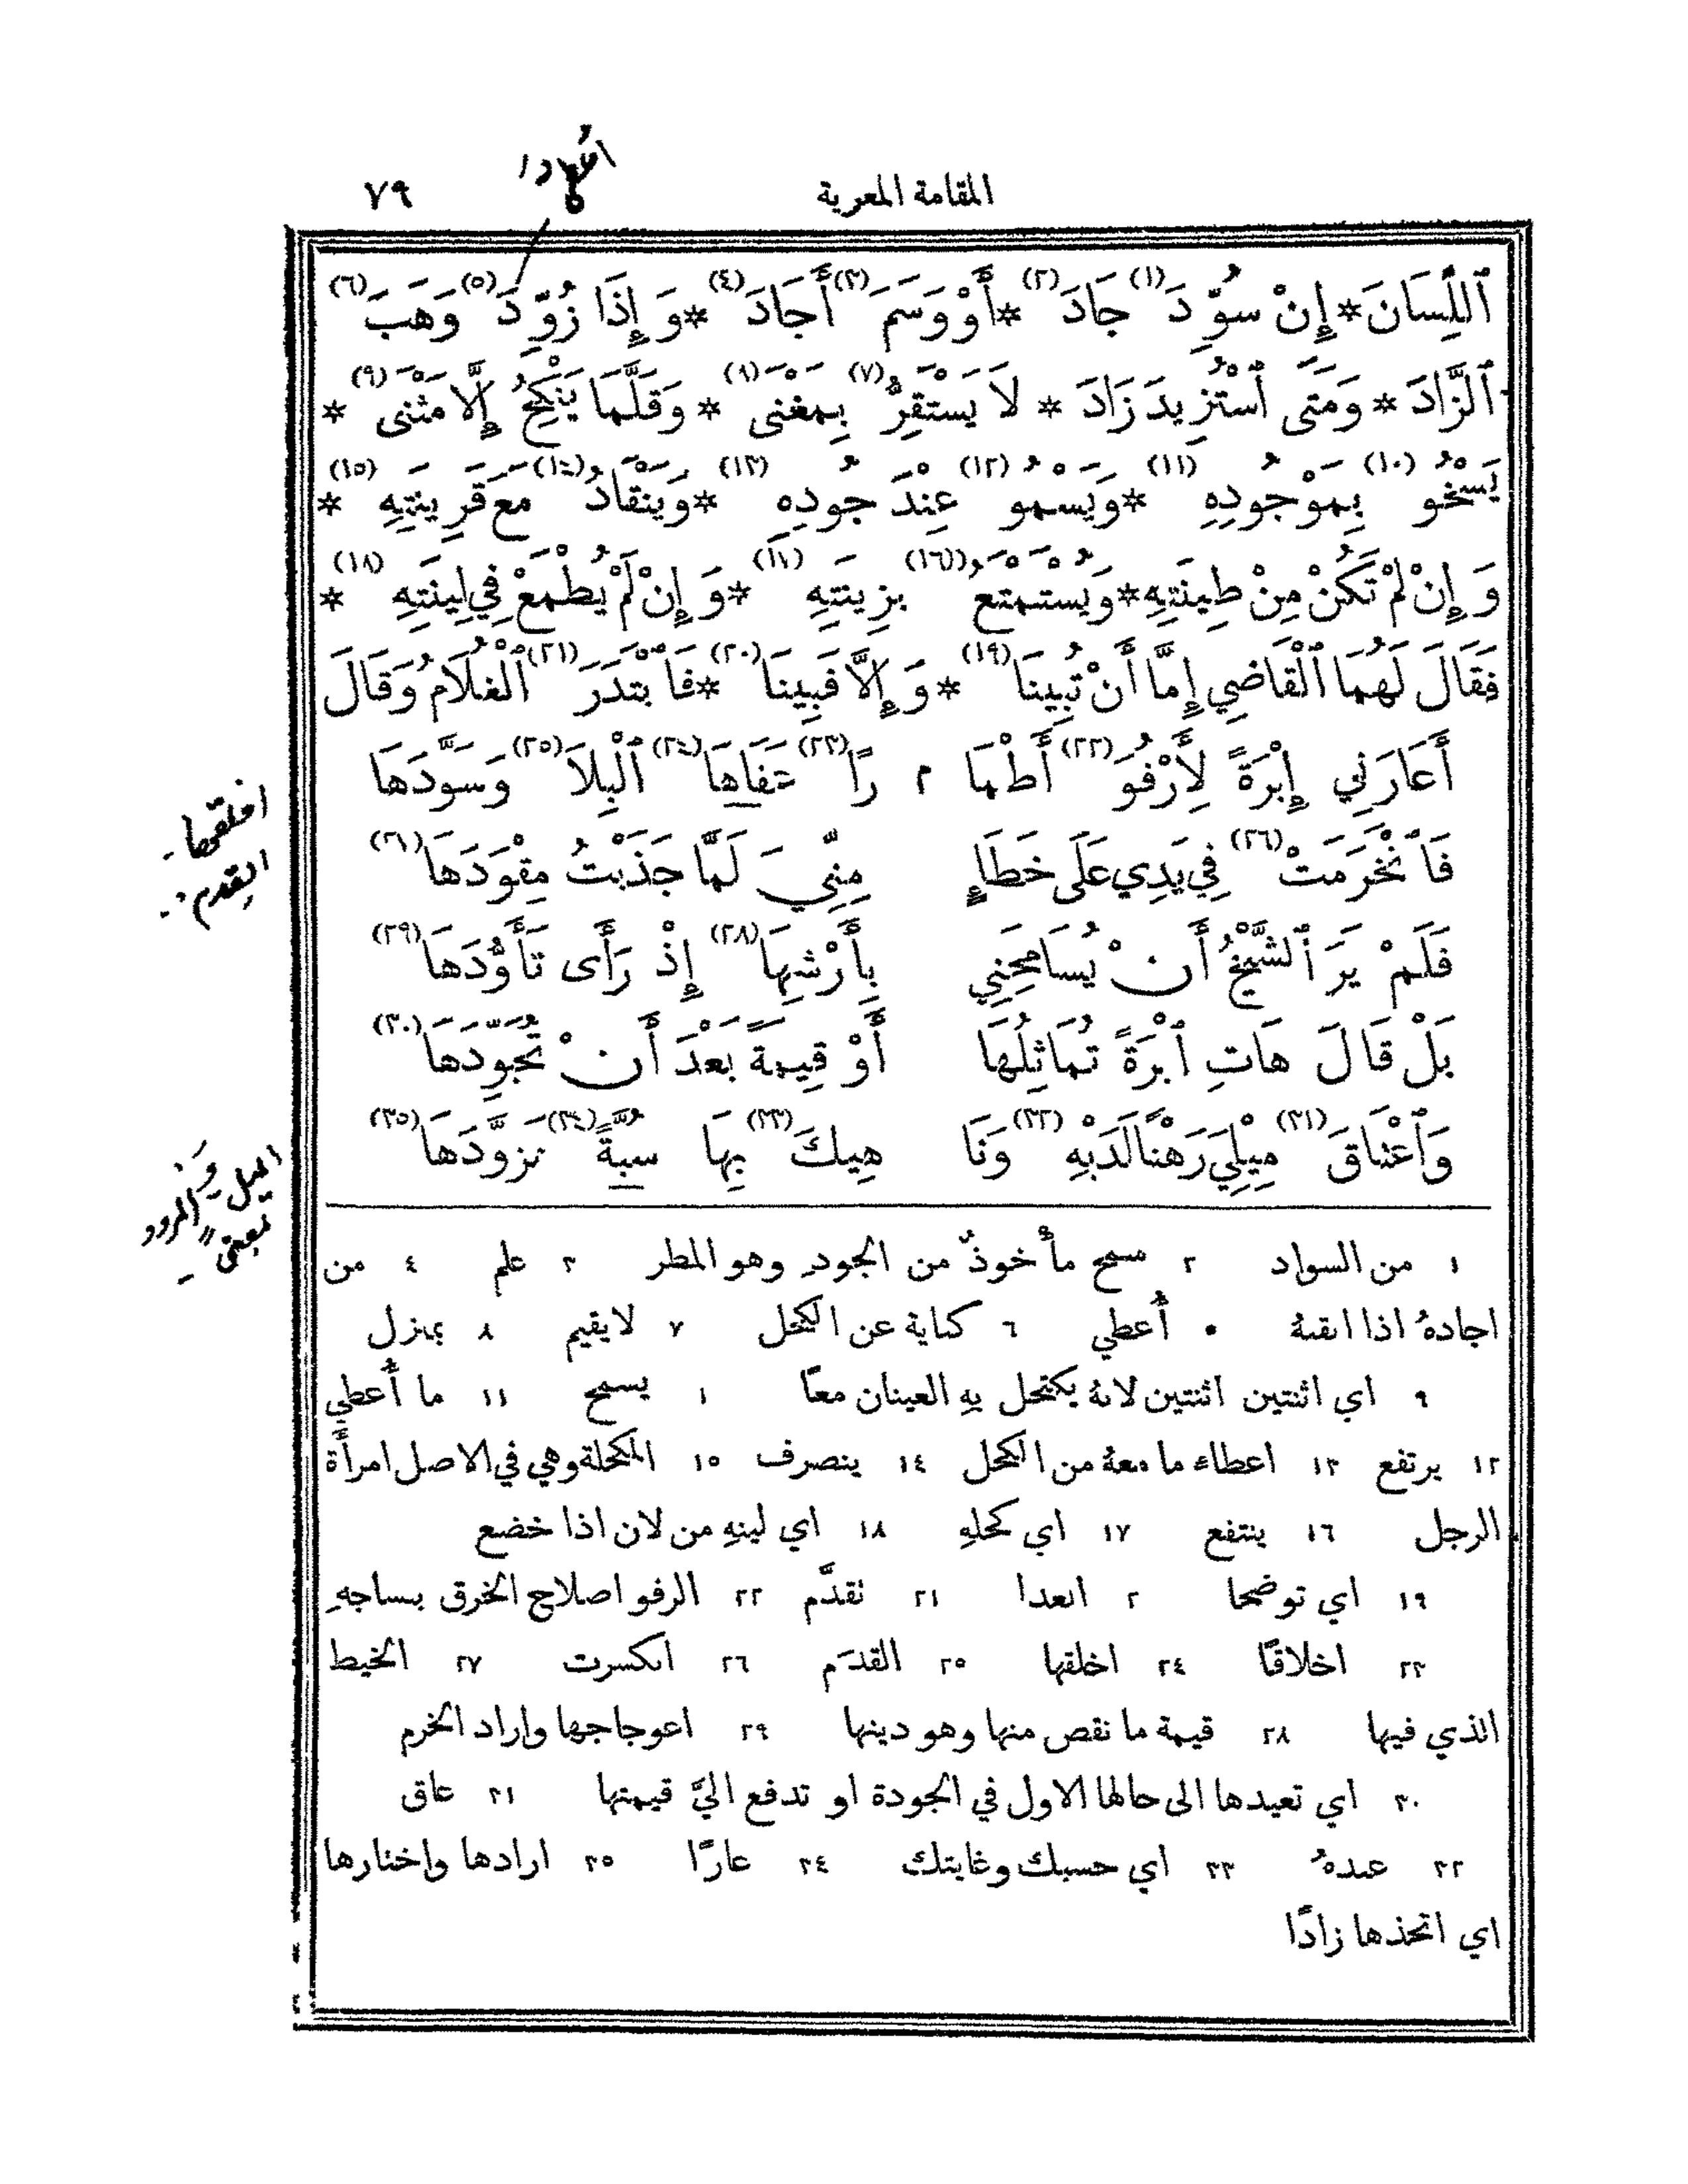 المقامة المعرية ٧٩
ٱللِّسَانَ * إِنْ سُوِّدَ (١) جَادَ (٢) * أَوْ وَسَمَ (٣) أَجَادَ (٤) * وَإِذَا زُوِّدَ (٥) وَهَبَ (٦)
ٱلزَّادَ * وَمَتَى ٱسْتُزِيدَ زَادَ * لَا يَسْتَقِرُّ (٧) بِمَغْنَى (٨) * وَقَلَّمَا يَنْكِحُ إِلَّا مَثْنَى (٩) *
يَسْخُو (١٠) بِمَوْجُودِهِ (١١) * وَيَسْمُو (١٢) عِنْدَ جُودِهِ (١٣) * وَيَنْقَادُ (١٤) مَعَ قَرِينَتِهِ (١٥) *
وَإِنْ لَمْ تَكُنْ مِنْ طِينَتِهِ * وَيُسْتَمْتَعُ (١٦) بِزِينَتِهِ (١٧) * وَإِنْ لَمْ يُطْمَعْ فِي لِينَتِهِ (١٨) *
فَقَالَ لَهُمَا ٱلْقَاضِي إِمَّا أَنْ تُبِينَا (١٩) * وَإِلَّا فَبِينَا (٢٠) * فَٱبْتَدَرَ (٢١) ٱلْغُلَامُ وَقَالَ
أَعَارَنِي إِبْرَةً لِأَرْفُوَ (٢٢) أَطْمَا م رًا (٢٣) عَفَاهَا (٢٤) ٱلْبِلَا (٢٥) وَسَوَّدَهَا
فَٱنْخَرَمَتْ (٢٦) فِي يَدِي عَلَى خَطَاءٍ مِنِّيَ لَمَّا جَذَبْتُ مِقْوَدَهَا (٢٧)
فَلَمْ يَرَ ٱلشَّيْخُ أَنْ يُسَامِحَنِي بِأَرْشِهَا (٢٨) إِذْ رَأَى تَأَوُّدَهَا (٢٩)
بَلْ قَالَ هَاتِ ٱبْرَةً تُمَاثِلُهَا أَوْ قِيمَةً بَعْدَ أَنْ تُجَوِّدَهَا (٣٠)
وَٱعْتَاقَ (٣١) مِيْلِي رَهْنًا لَدَيْهِ (٣٢) وَنَا هِيكَ (٣٣) بِهَا سُبَّةً (٣٤) تَزَوَّدَهَا (٣٥)
اخلقها
القدم
الميل و
المرود
بمعنى
١ من السواد ٢ سمح مأخوذٌ من الجود وهو المطر ٣ علم ٤ من
اجادهُ اذا اتقنهُ ٥ أُعطي ٦ كناية عن الكحل ٧ لا يقيم ٨ بمنزل
٩ اي اثنتين اثنتين لانهُ يكتحل بهِ العينان معًا ١ يسمح ١١ ما أُعطي
١٢ يرتفع ١٣ اعطاء ما معهُ من الكحل ١٤ ينصرف ١٥ المكحلة وهي في الاصل امرأة
الرجل ١٦ ينتفع ١٧ اي كحلهِ ١٨ اي لينهِ من لان اذا خضع
١٩ اي توضحا ٢ ابعدا ٢١ تقدَّم ٢٢ الرفو اصلاح الخرق بنساجهِ
٢٣ اخلاقًا ٢٤ اخلقها ٢٥ القدَم ٢٦ انكسرت ٢٧ الخيط
الذي فيها ٢٨ قيمة ما نقص منها وهو دينها ٢٩ اعوجاجها واراد الخرم
٣٠ اي تعيدها الى حالها الاول في الجودة او تدفع اليَّ قيمتها ٣١ عاق
٣٢ عندهُ ٣٣ اي حسبك وغايتك ٣٤ عارًا ٣٥ ارادها واختارها
اي اتخذها زادًا